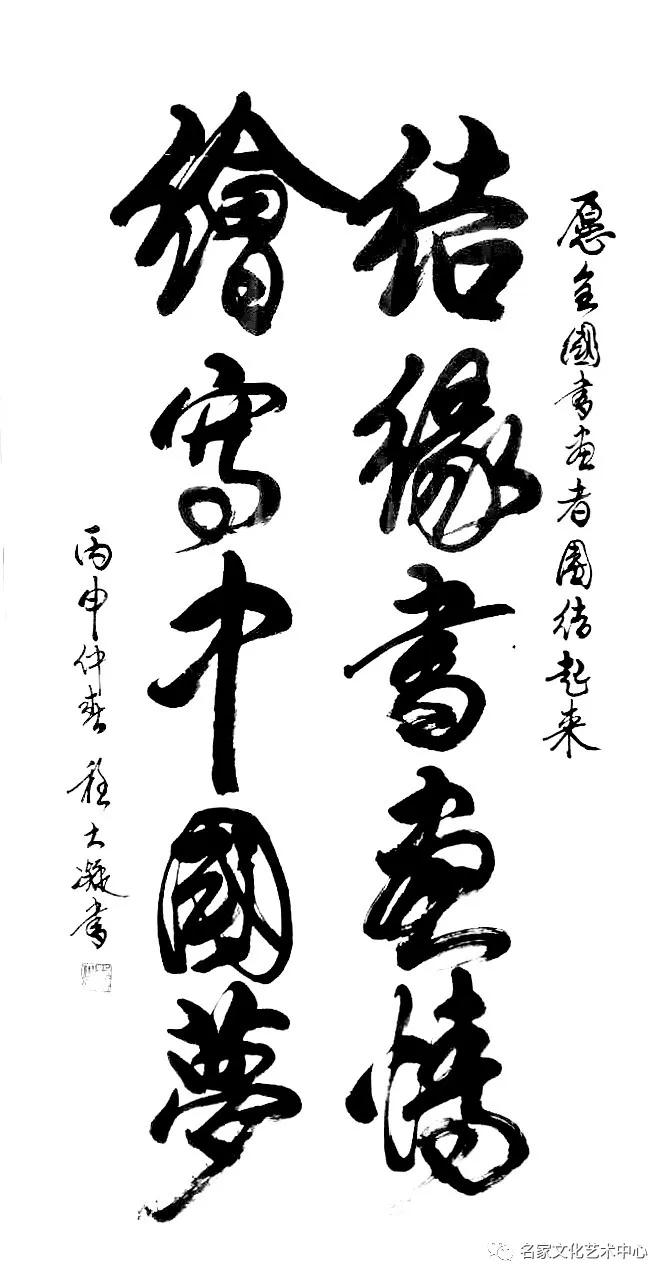 愿全國书画者團结起来
结缘書畫情
繪寫中國夢
丙申仲春 程大凝书
名家文化艺术中心